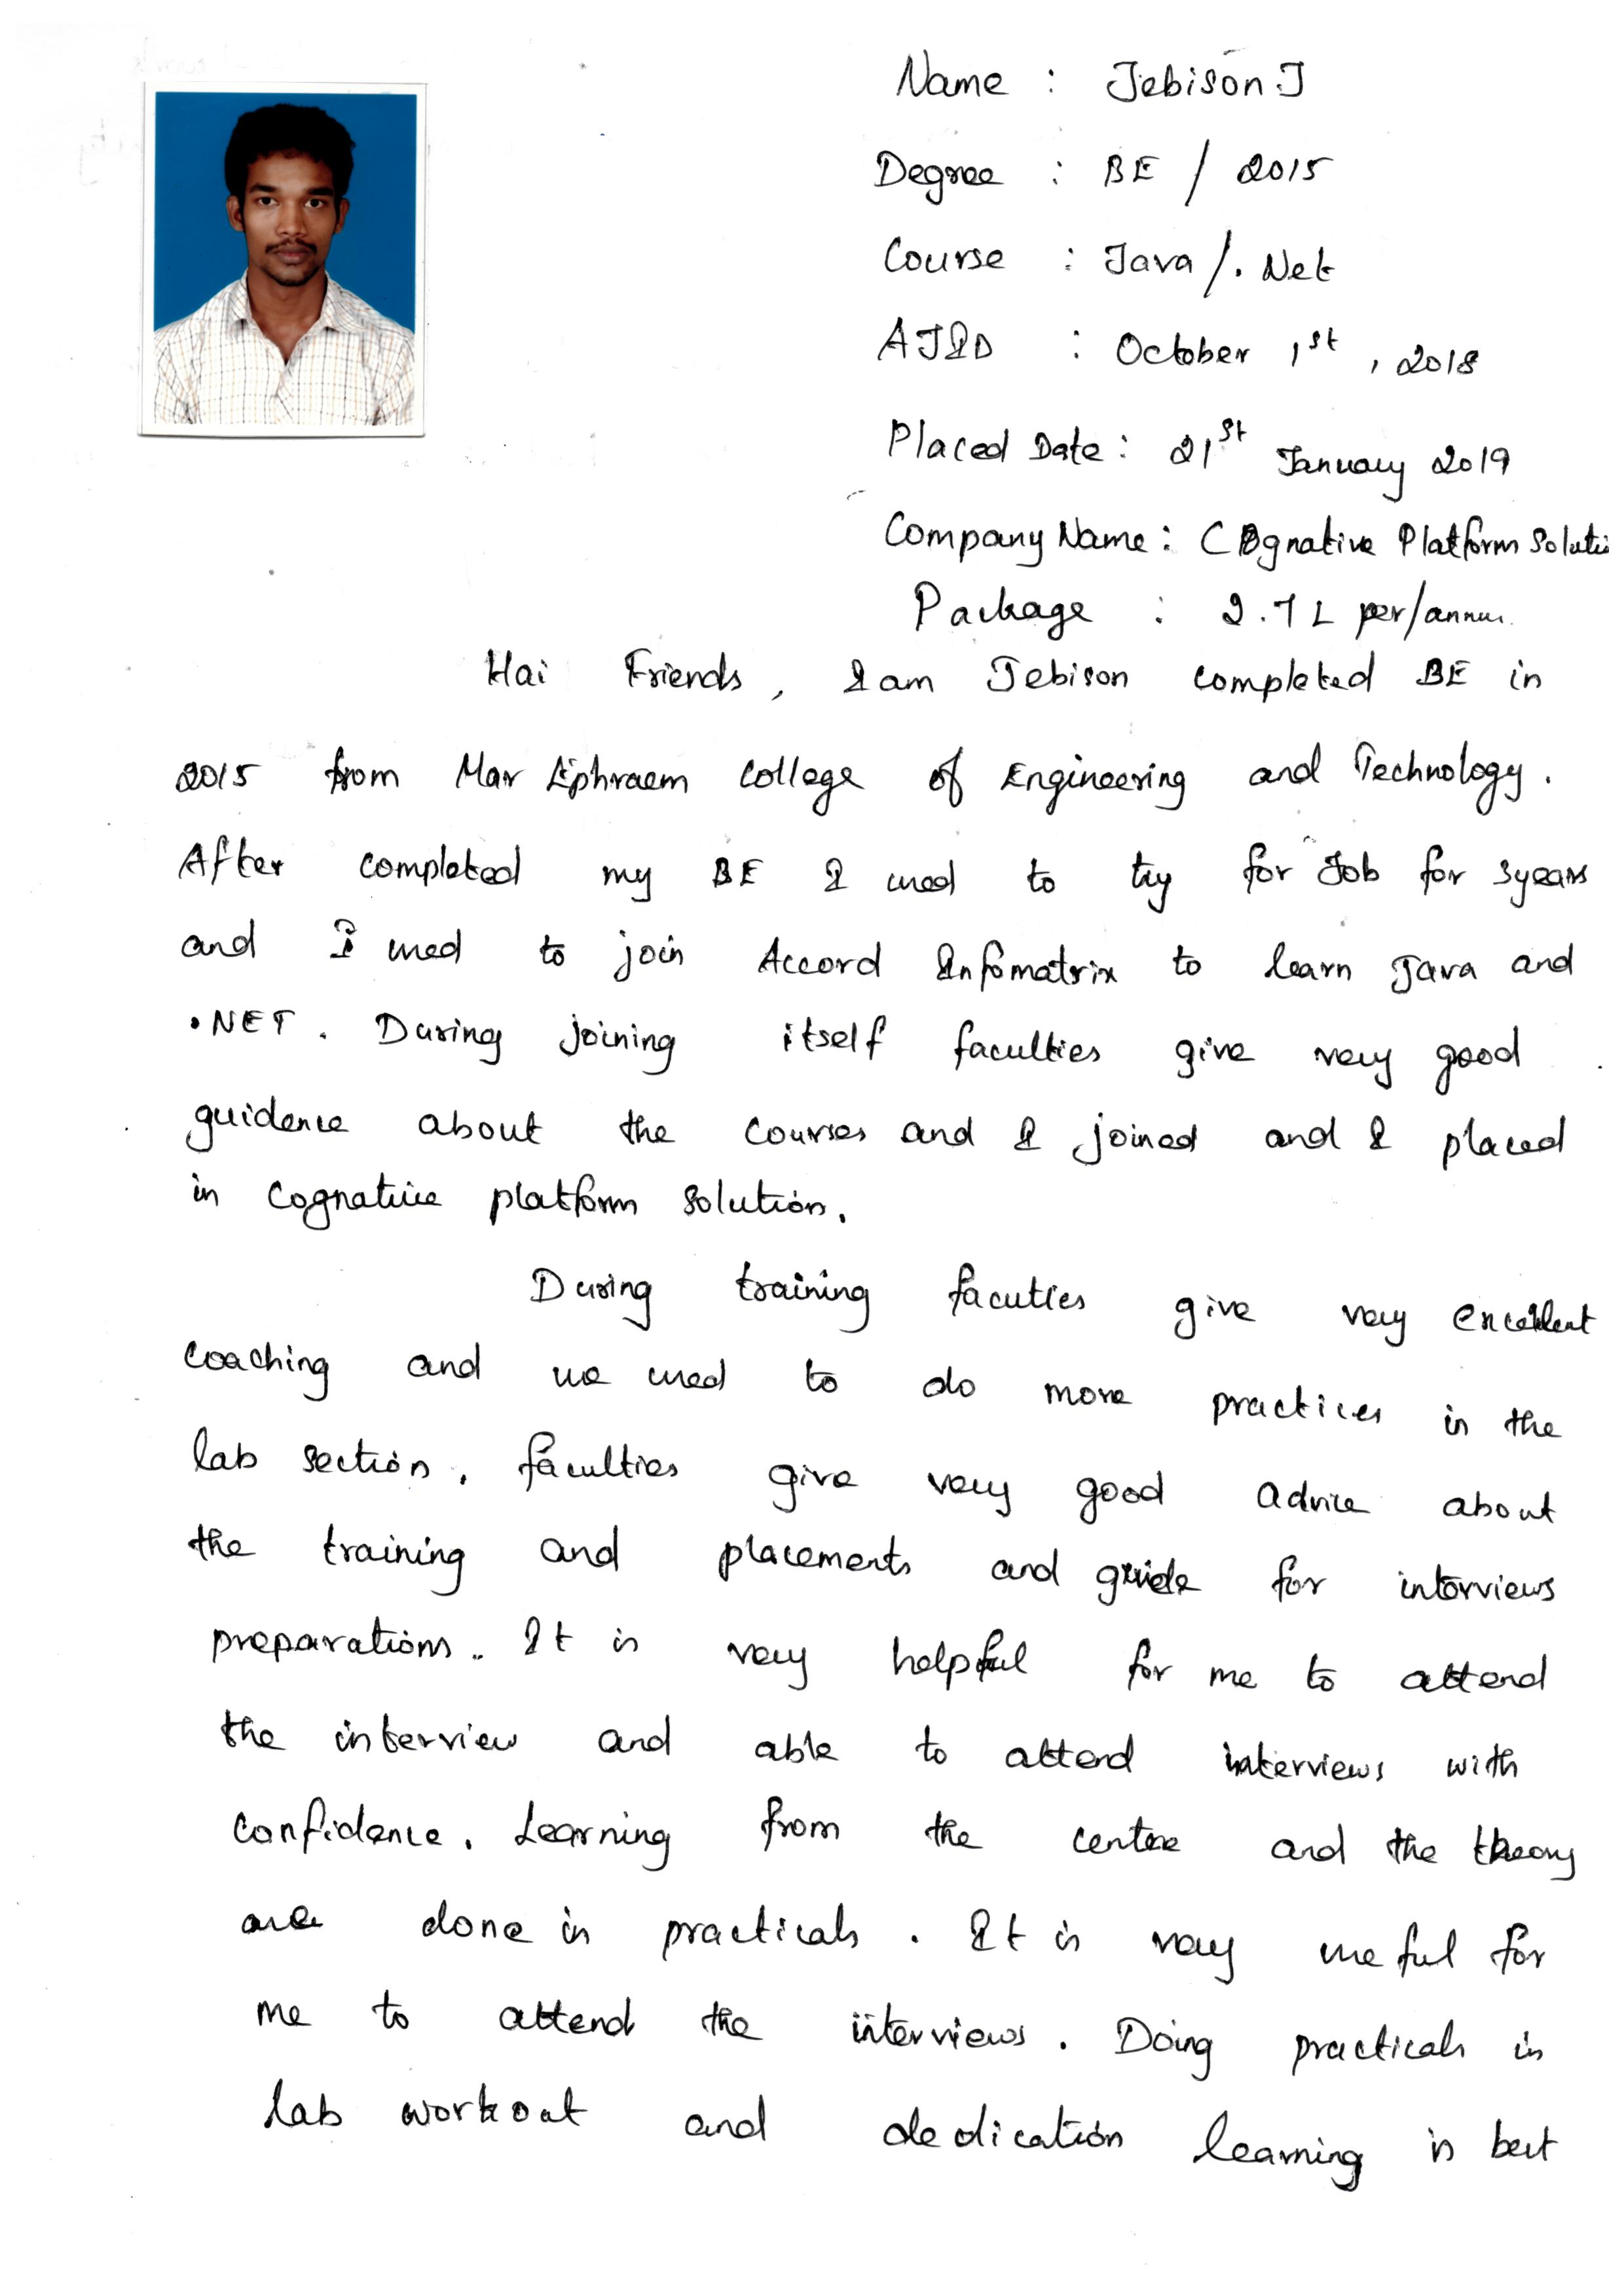 Name : Jebison J
Degree : BE / 2015
Course : Java / .Net
AJID : October 1st, 2018
Placed Date : 21st January 2019
Company Name : Cognative Platform Soluti
Package : 2.7 L per/annu
Hai Friends, I am Jebison completed BE in
2015 from Mar Ephraem college of Engineering and Technology.
After completed my BE I used to try for Job for 3years
and I used to join Accord Infomatrix to learn Java and
.NET. During joining itself faculties give very good
guidence about the courses and I joined and I placed
in Cognative platform solution.
During training faculties give very excellent
coaching and we used to do more practices in the
lab section. faculties give very good advice about
the training and placements and guide for interviews
preparations. It is very helpful for me to attend
the interview and able to attend interviews with
confidence. Learning from the centre and the theory
are done in practicals. It is very useful for
me to attend the interviews. Doing practicals in
lab workout and dedication learning is best